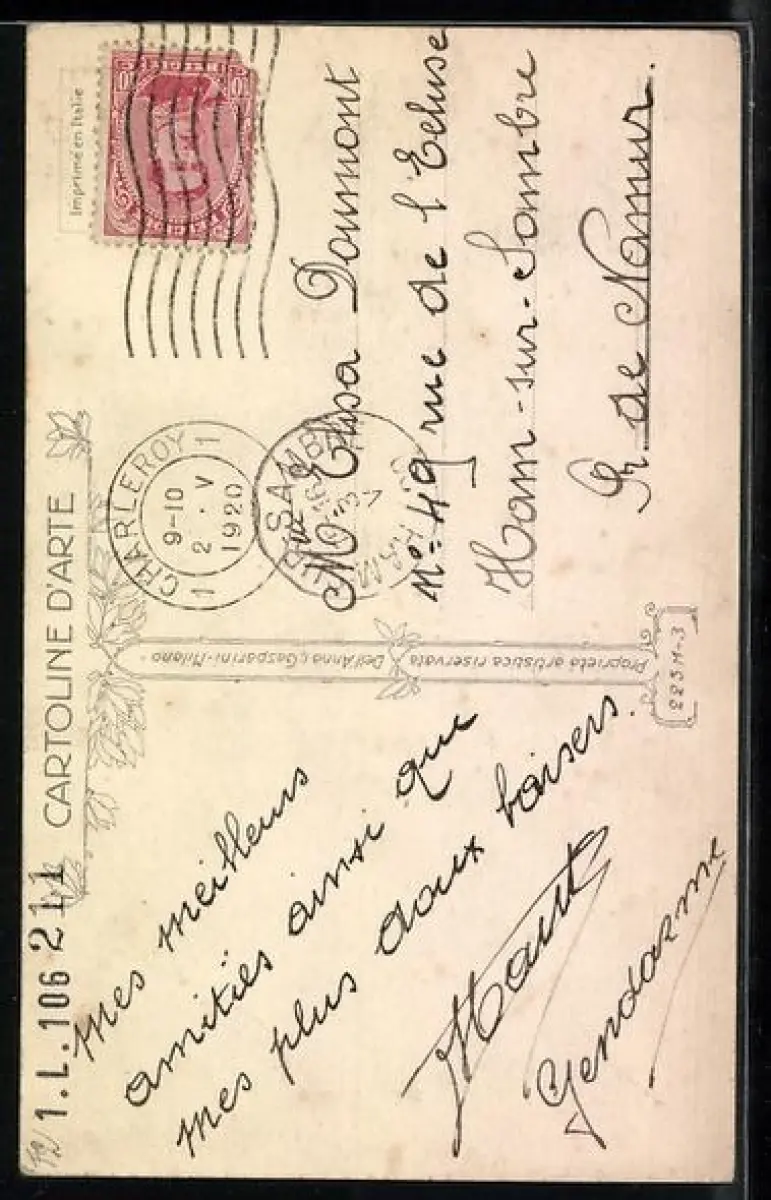 1.L.106 211
CARTOLINE D'ARTE
Imprimé en Italie
BELGIE
CHARLEROY
1 1
9-10
2 . V
1920
SAMB
Mes meilleurs
amitiés ainsi que
mes plus doux baisers.
Gendarme
Proprietà artistica riservata
Dell'Anna & Gasparini-Milano
223 M-3
Elisa Doumont
No 49 rue de l'Ecluse
Ham-sur-Sambre
Pr. de Namur.